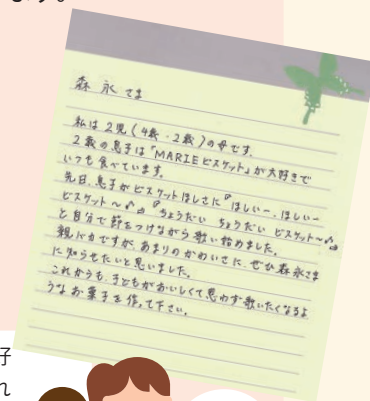 ます。
森永さま
私は2児(4歳・2歳)の母です。
2歳の息子は「MARIEビスケット」が大好きで
いつも食べています。
先日、息子がビスケットほしさに『ほしいー、ほしいー
ビスケット〜♪♫『ちょうだい ちょうだい ビスケット〜♪♫
と自分で節をつけながら歌い始めました。
親バカですが、あまりのかわいさに、ぜひ森永さま
に知らせたいと思いました。
これからも、子どもがおいしくて思わず歌いたくなるよ
うなお菓子を作って下さい。
好
れ